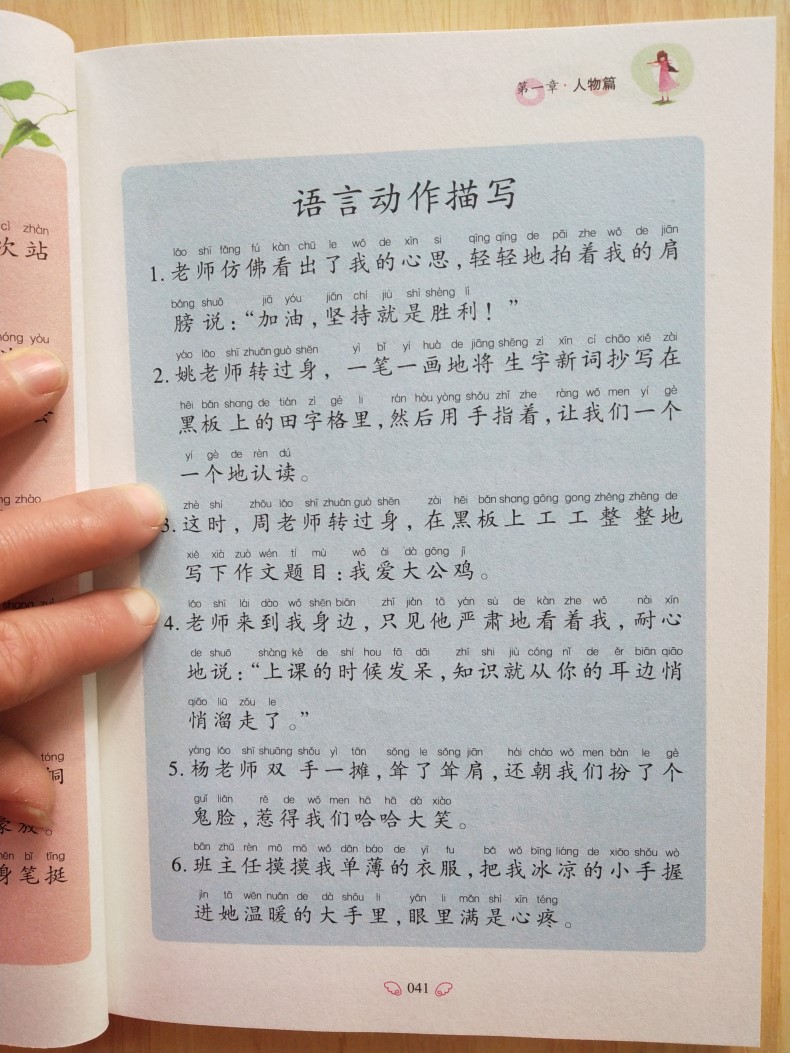 第一章·人物篇
语言动作描写
lǎo shī fǎng fú kàn chū le wǒ de xīn si qīng qīng de pāi zhe wǒ de jiān
1.老师仿佛看出了我的心思,轻轻地拍着我的肩
bǎng shuō jiā yóu jiān chí jiù shì shèng lì
膀说:“加油,坚持就是胜利!”
yáo lǎo shī zhuǎn guò shēn yì bǐ yí huà de jiāng shēng zì xīn cí chāo xiě zài
2.姚老师转过身,一笔一画地将生字新词抄写在
hēi bǎn shang de tián zì gé li rán hòu yòng shǒu zhǐ zhe ràng wǒ men yí gè
黑板上的田字格里,然后用手指着,让我们一个
yí gè de rèn dú
一个地认读。
zhè shí zhōu lǎo shī zhuǎn guò shēn zài hēi bǎn shang gōng gong zhěng zhěng de
3.这时,周老师转过身,在黑板上工工整整地
xiě xià zuò wén tí mù wǒ ài dà gōng jī
写下作文题目:我爱大公鸡。
lǎo shī lái dào wǒ shēn biān zhǐ jiàn tā yán sù de kàn zhe wǒ nài xīn
4.老师来到我身边,只见他严肃地看着我,耐心
de shuō shàng kè de shí hou fā dāi zhī shi jiù cóng nǐ de ěr biān qiāo
地说:“上课的时候发呆,知识就从你的耳边悄
qiāo liū zǒu le
悄溜走了。”
yáng lǎo shī shuāng shǒu yì tān sǒng le sǒng jiān hái cháo wǒ men bàn le gè
5.杨老师双手一摊,耸了耸肩,还朝我们扮了个
guǐ liǎn rě de wǒ men hā hā dà xiào
鬼脸,惹得我们哈哈大笑。
bān zhǔ rèn mō mō wǒ dān báo de yī fu bǎ wǒ bīng liáng de xiǎo shǒu wò
6.班主任摸摸我单薄的衣服,把我冰凉的小手握
jìn tā wēn nuǎn de dà shǒu li yǎn li mǎn shì xīn téng
进她温暖的大手里,眼里满是心疼。
041
cì zhàn
次站
yòu
zhào
tóng
bǐ tǐng
身笔挺